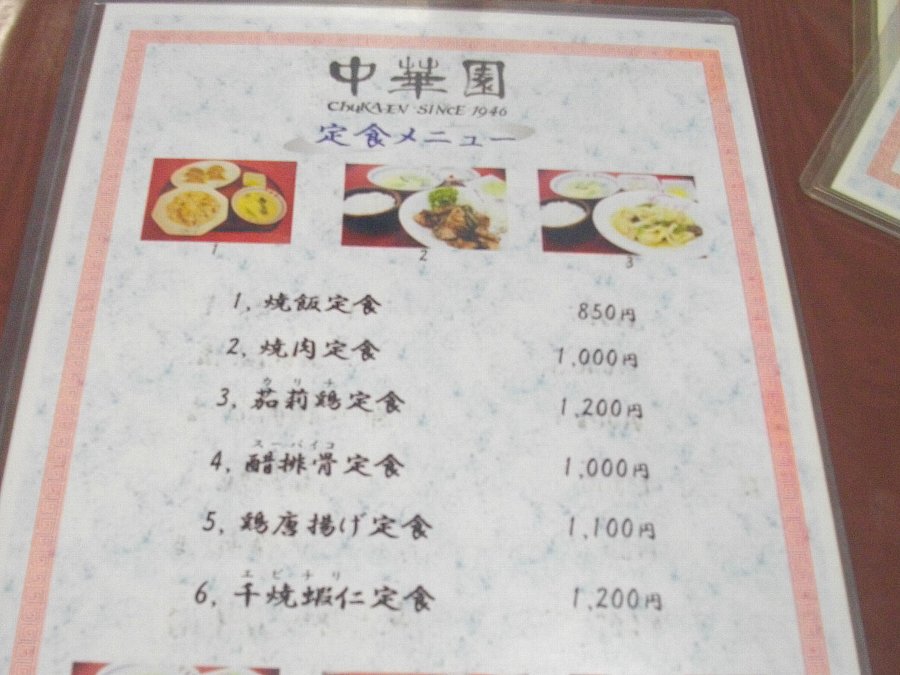 中華園
ChuKAEN SINCE 1946
定食メニュー
1 2 3
1, 焼飯定食 850円
2, 焼肉定食 1,000円
3, 茄莉鶏定食 1,200円
スーパイコ
4, 醋排骨定食 1,000円
5, 鶏唐揚げ定食 1,100円
エビチリ
6, 干焼蝦仁定食 1,200円